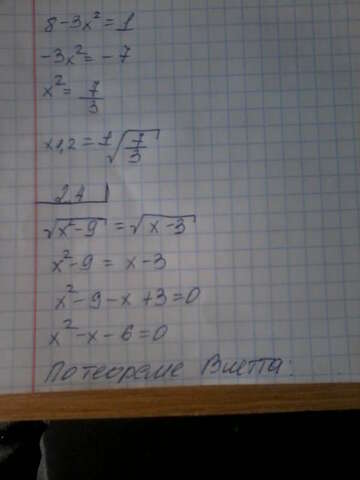 8-3x²=1
-3x²=-7
x²=7/3
x1,2=±√7/3
2.4
√x²-9=√x-3
x²-9=x-3
x²-9-x+3=0
x²-x-6=0
По теореме Виетта: